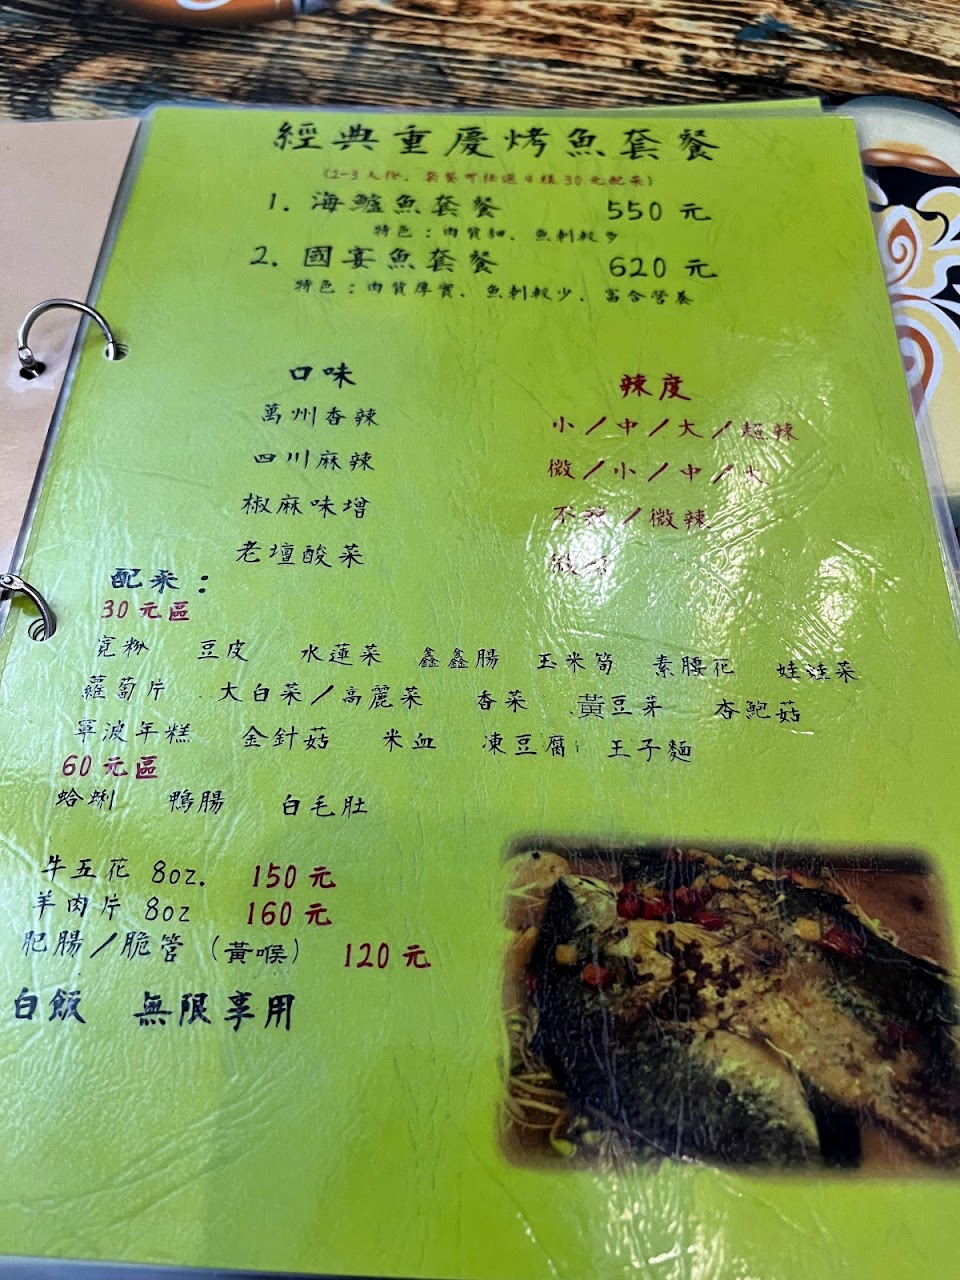 經典重慶烤魚套餐
(2-3人份、套餐可任選4樣30元配菜)
1. 海鱸魚套餐 550 元
特色：肉質細、魚刺較多
2. 國宴魚套餐 620 元
特色：肉質厚實、魚刺較少、富含營養
口味 辣度
萬州香辣 小/中/大/超辣
四川麻辣 微/小/中/大
椒麻味增 不辣/微辣
老壇酸菜
配菜：
30元區
寬粉 豆皮 水蓮菜 鑫鑫腸 玉米筍 素腰花 娃娃菜
蘿蔔片 大白菜/高麗菜 香菜 黃豆芽 杏鮑菇
寧波年糕 金針菇 米血 凍豆腐 王子麵
60元區
蛤蜊 鴨腸 白毛肚
牛五花 8oz. 150元
羊肉片 8oz 160元
肥腸/脆管(黃喉) 120元
白飯 無限享用